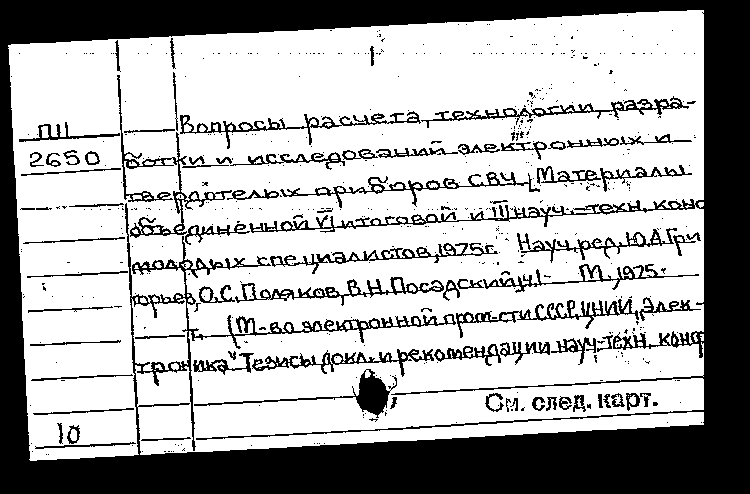 1
ПII Вопросы расчета, технологии, разра-
2650 ботки и исследований электронных и
твердотелых приборов СВЧ. [Материалы
объединенной VI итоговой и III науч.-техн. конф
молодых специалистов, 1975г. Науч. ред. Ю.А. Гри
горьев, О.С. Поляков, В.Н. Посадский] ч.1- М., 1975.
т. (М-во электронной пром-сти СССР, ЦНИИ „Элек-
троника" Тезисы докл. и рекомендации науч-техн. конф
10 См. след. карт.